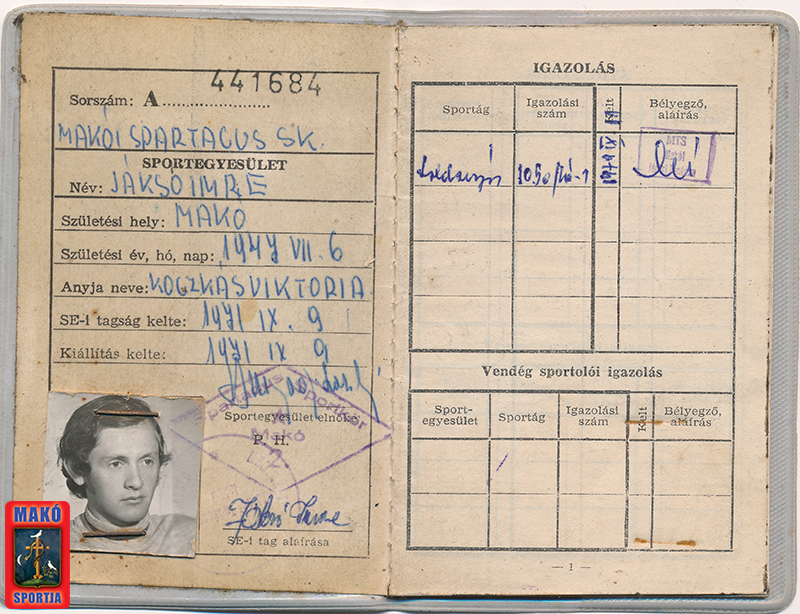 Sorszám: A 441684
MAKÓI SPARTACUS SK.
SPORTEGYESÜLET
Név: JÁKSÓ IMRE
Születési hely: MAKÓ
Születési év, hó, nap: 1947 VII. 6
Anyja neve: KOCZKÁS VIKTÓRIA
SE-i tagság kelte: 1971 IX. 9
Kiállítás kelte: 1971 IX 9
Spartacus Sportkör
Makó
Sportegyesület elnöke
P. H.
SE-i tag aláírása
MAKÓ
SPORTJA
IGAZOLÁS
Sportág
Igazolási
szám
Kelt
Bélyegző,
aláírás
MTS
Vendég sportolói igazolás
Sport-
egyesület
Sportág
Igazolási
szám
Kelt
Bélyegző,
aláírás
— 1 —